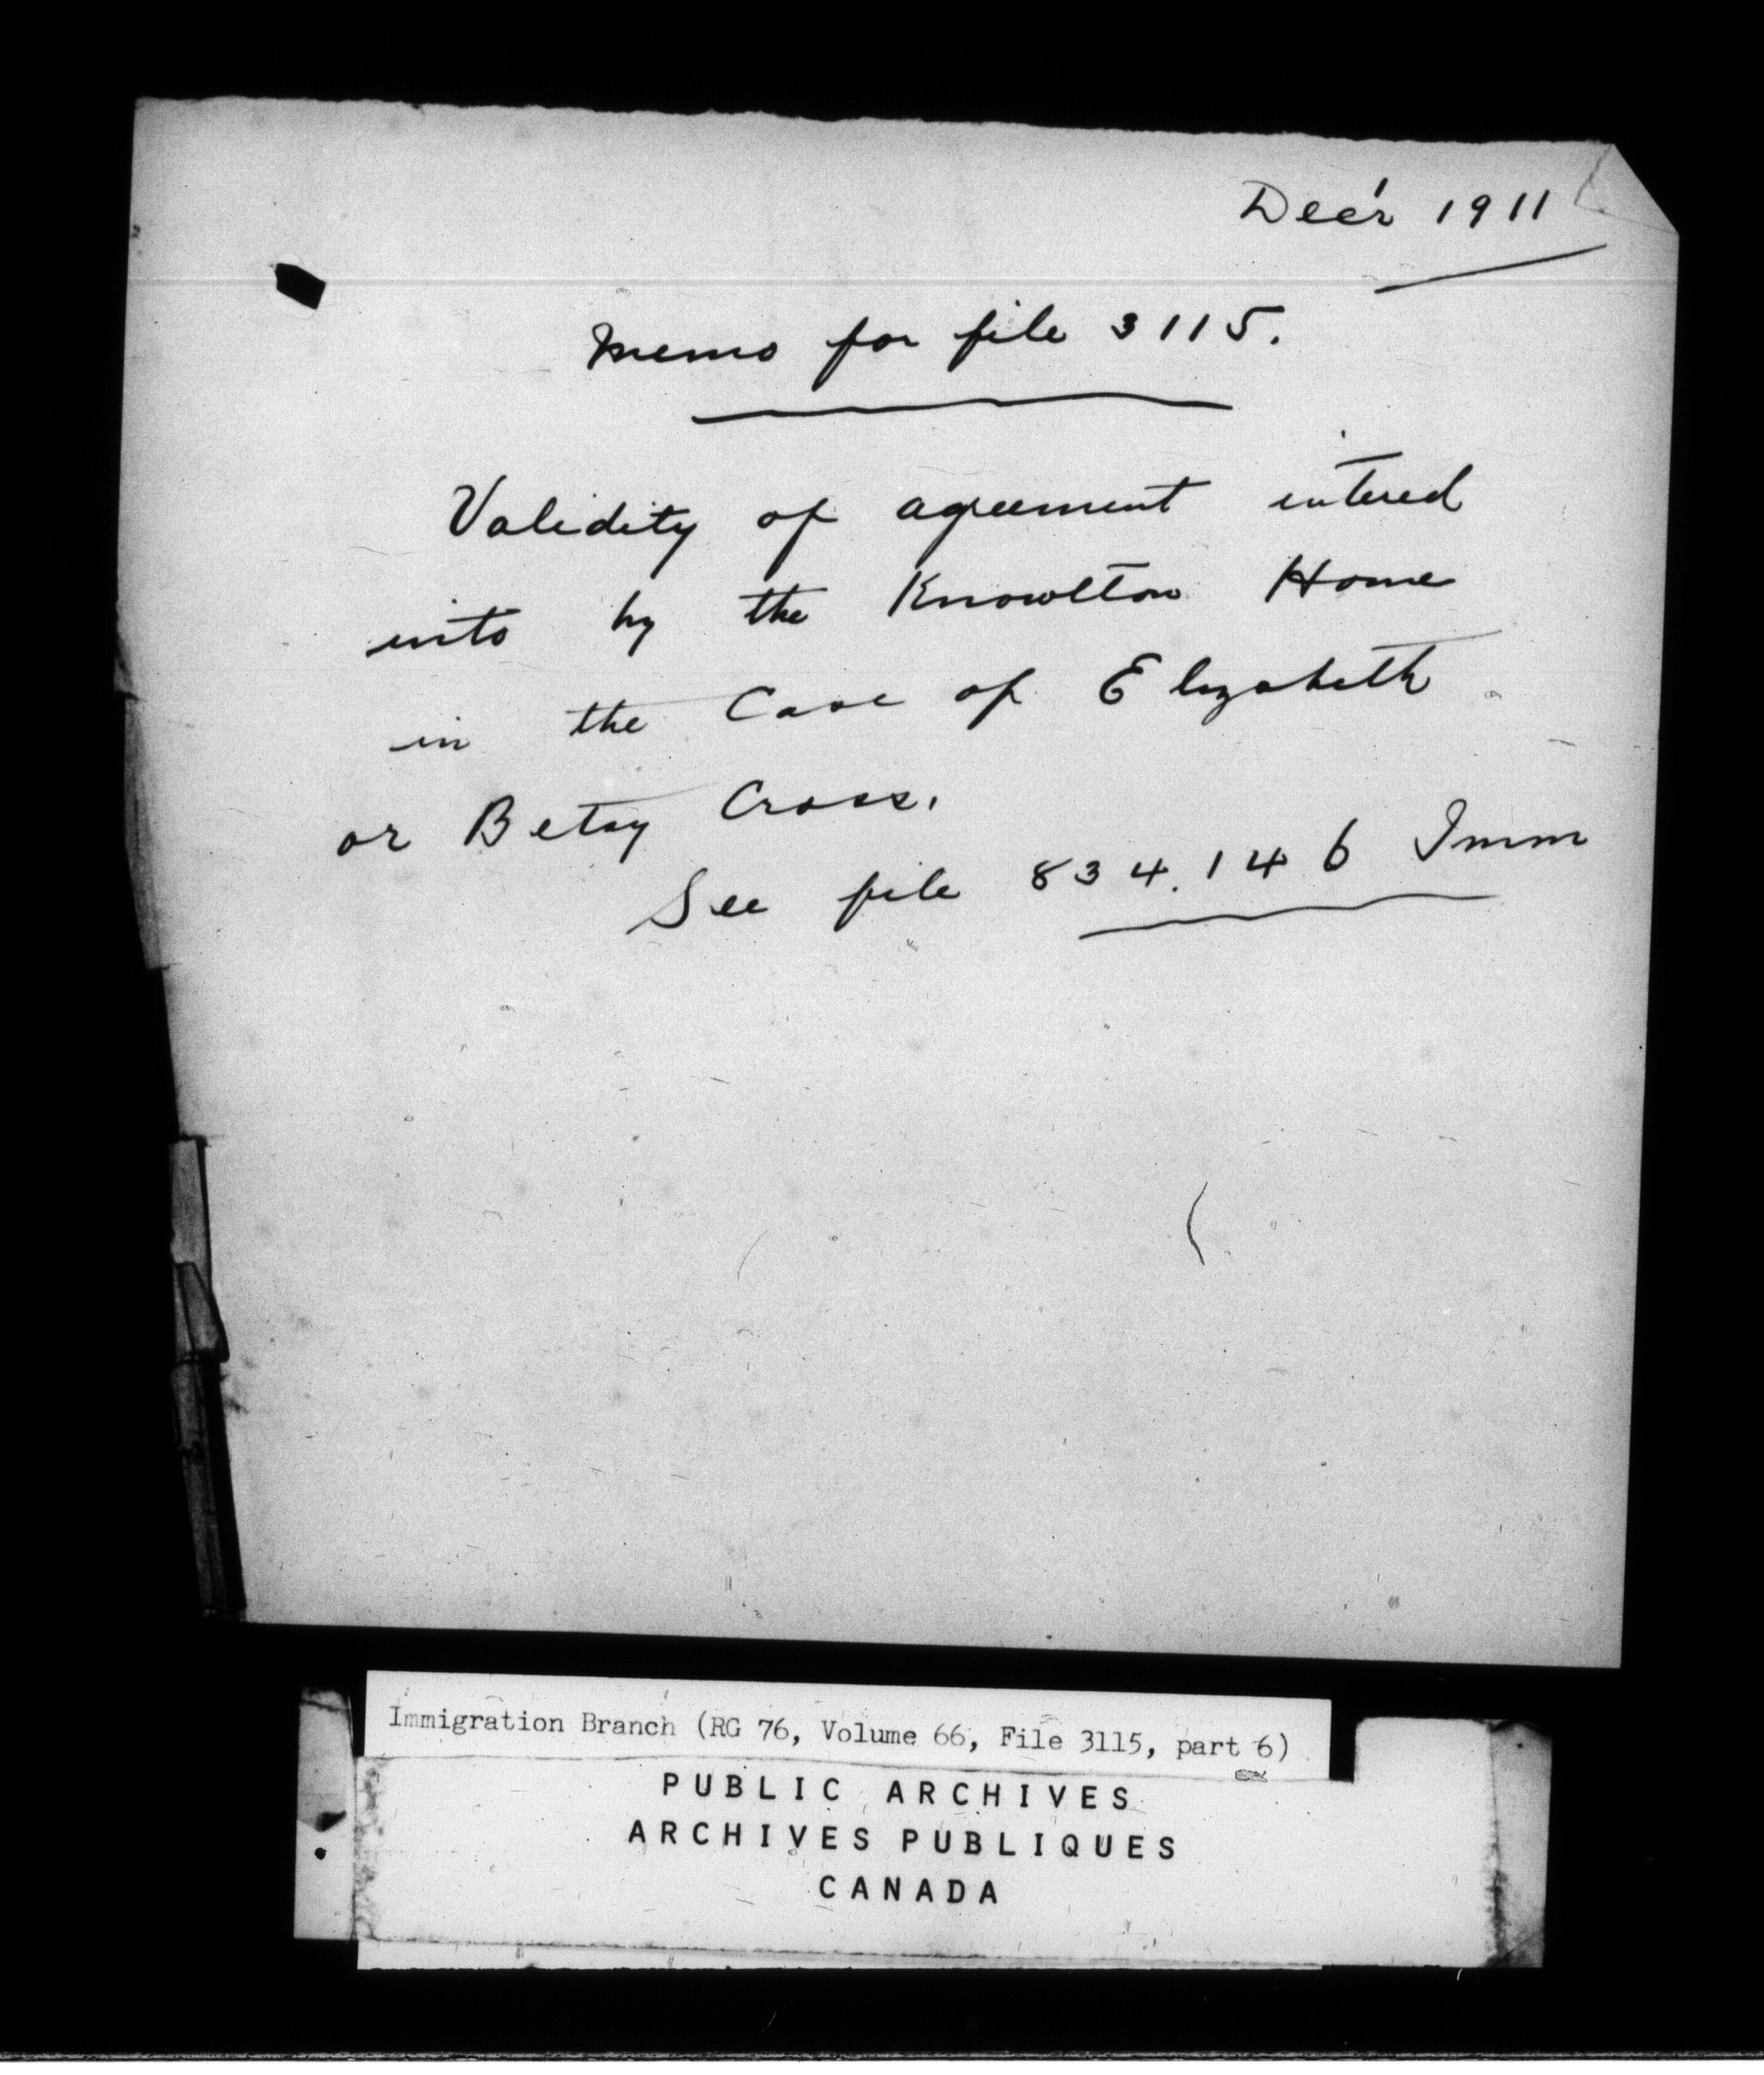 Dec'r 1911
Memo for file 3115.
Validity of agreement entered
into by the Knowlton Home
in the Case of Elizabeth
or Betsy Cross.
See file 834.146 Imm
Immigration Branch (RG 76, Volume 66, File 3115, part 6)
PUBLIC ARCHIVES
ARCHIVES PUBLIQUES
CANADA